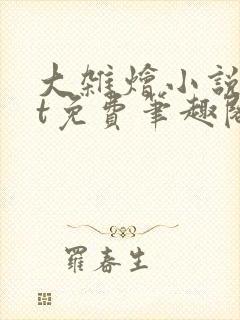 大雜燴小說
t免費筆趣閣
羅春生